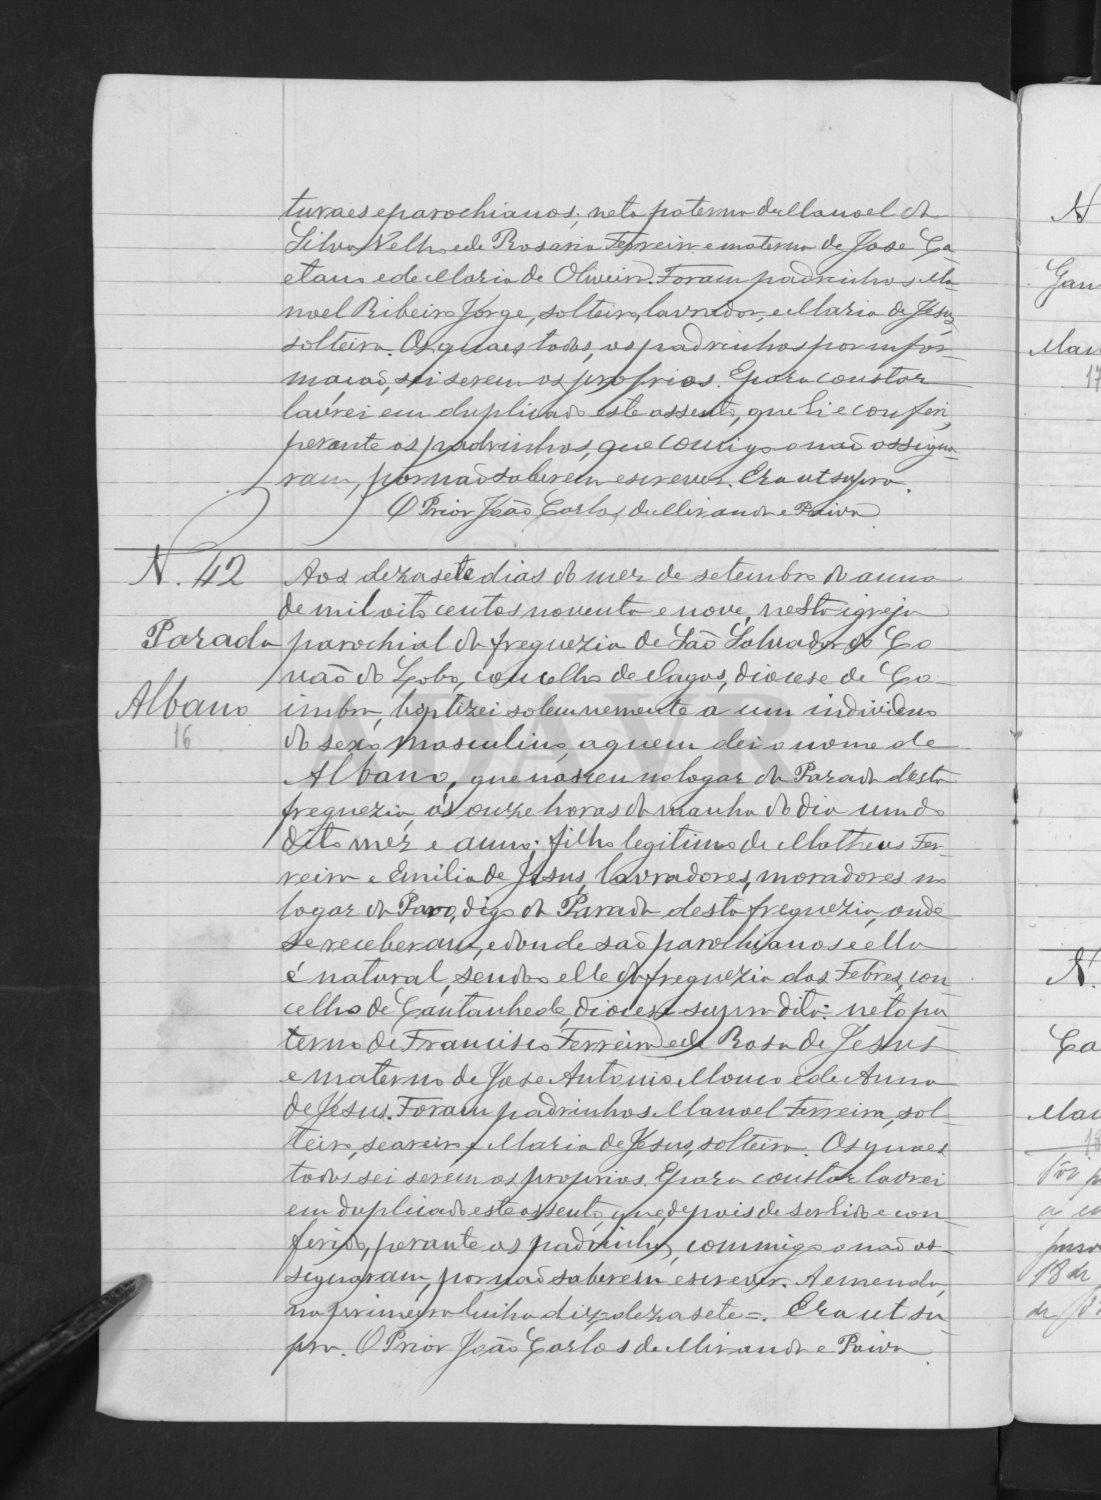 turaes e parochianos; neta paterna de Manoel da
Silva Velho e de Rosaria Ferreira e materna de Jose Ca
etano e de Maria de Oliveira. Foram padrinhos Ma-
noel Ribeiro Jorge, solteiro, lavrador, e Maria de Jesus,
solteira. Os quaes todos, os padrinhos por infor-
mação, sei serem os proprios. E para constar
lavrei em duplicado este assento, que li e conferi,
perante os padrinhos, que comigo o não assigna-
ram, por não saberem escrever. Era ut supra.
O Prior João Carlos de Miranda e Paiva
N. 42
Parada
Albano
16
Aos dezasete dias do mez de setembro do anno
de mil oito centos noventa e nove, nesta igreja
parochial da freguezia de São Salvador do Co
vão do Lobo, concelho de Vagos, diocese de Co-
imbra, baptizei solemnemente a um individuo
do sexo masculino, a quem dei o nome de
Albano, que nasceu no logar da Parada desta
freguezia, ás onze horas da manha do dia um do
dito mez e anno; filho legitimo de Matheus Fer-
reira e Emilia de Jesus, lavradores, moradores no
logar da Paro, digo da Parada desta freguezia, onde
se receberam, e donde são parochianos e ella
é natural, sendo elle da freguezia das Febres, con
celho de Cantanhede, diocese supra dita: neto pa
terno de Francisco Ferreira e de Rosa de Jesus
e materno de Jose Antonio Mouco e de Anna
de Jesus. Foram padrinhos Manoel Ferreira, sol-
teiro, seareiro, e Maria de Jesus, solteira. Os quaes
todos sei serem os proprios. E para constar lavrei
em duplicado este assento, que, depois de ser lido e con-
ferido, perante os padrinhos, commigo o não as-
signaram, por não saberem escrever. A emenda,
na primeira linha diz = dezasete =. Era ut su
pra. O Prior João Carlos de Miranda e Paiva.
ADAVR
N
Gan
Man
17
N.
Ca
Man
18